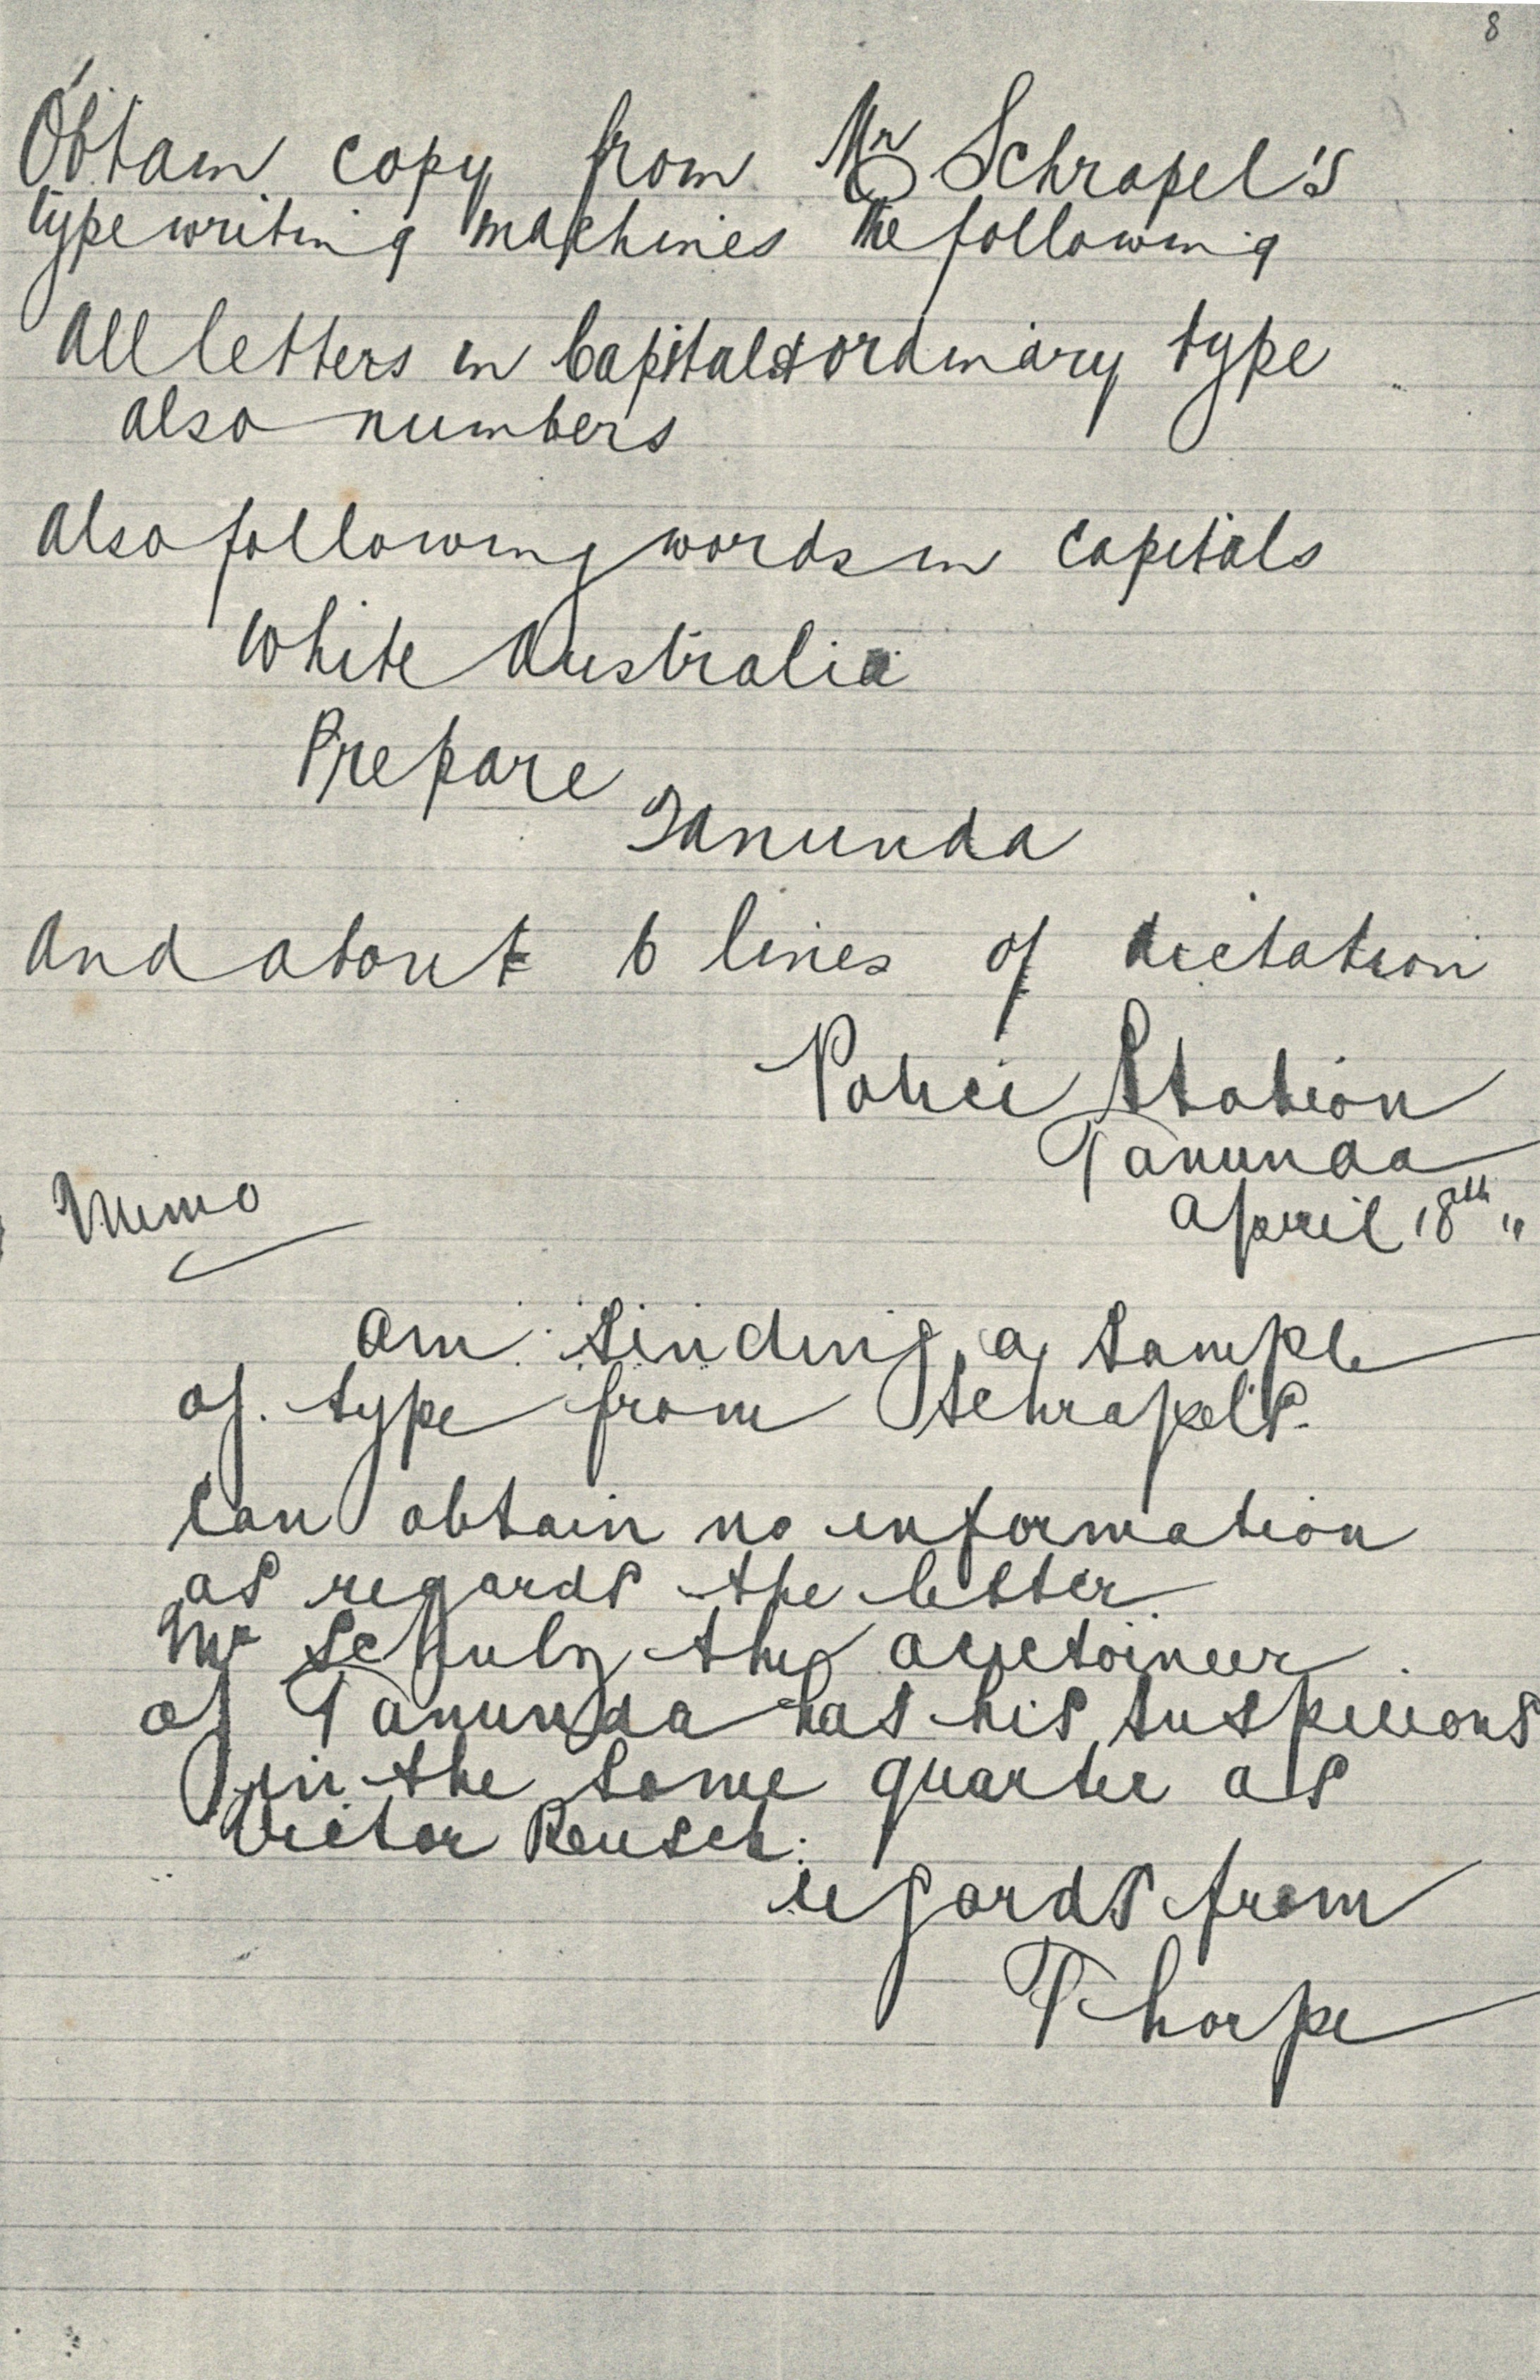 8
Obtain copy from Mr Schrapel's
typewriting machines the following
All letters in Capital & ordinary type
also numbers
Also following words in capitals
White Australia
Prepare
Tanunda
And about 6 lines of dictation
Police Station
Tanunda
April 18th "
Memo
Am sending a sample
of type from Schrapels.
Can obtain no information
as regards the letter
Mr Schulz the auctoineer
of Tanunda has his suspicions
in the same quarter as
Victor Reusch.
regards from
Thorpe